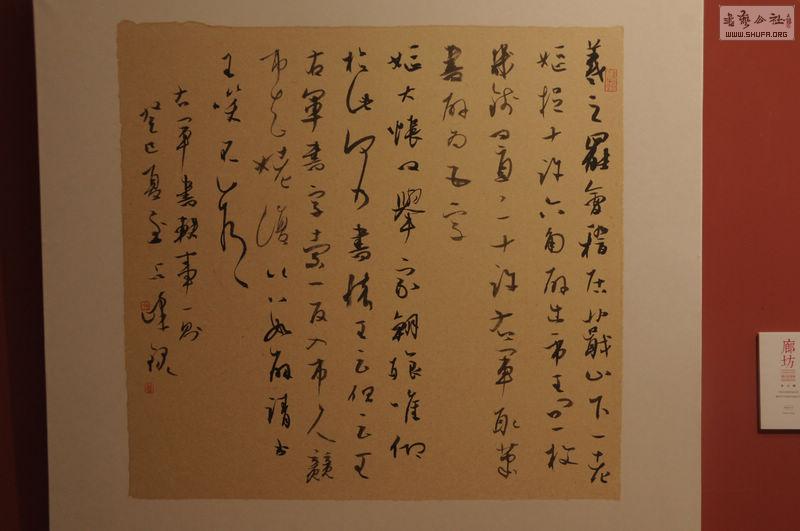 羲之罷會稽居於蕺山下一老
嫗捉十許六角扇出市王問一枚
幾錢曰直二十許右軍取筆
書扇为五字
嫗大悵曰舉家朝飧唯仰
於此何乃書壞王云但云王
右軍書字索一百入市人競
市去姥復以數扇請書
王笑不答
右軍書軼事一則
癸巳夏至
書藝公社
WWW.SHUFA.ORG
廊坊